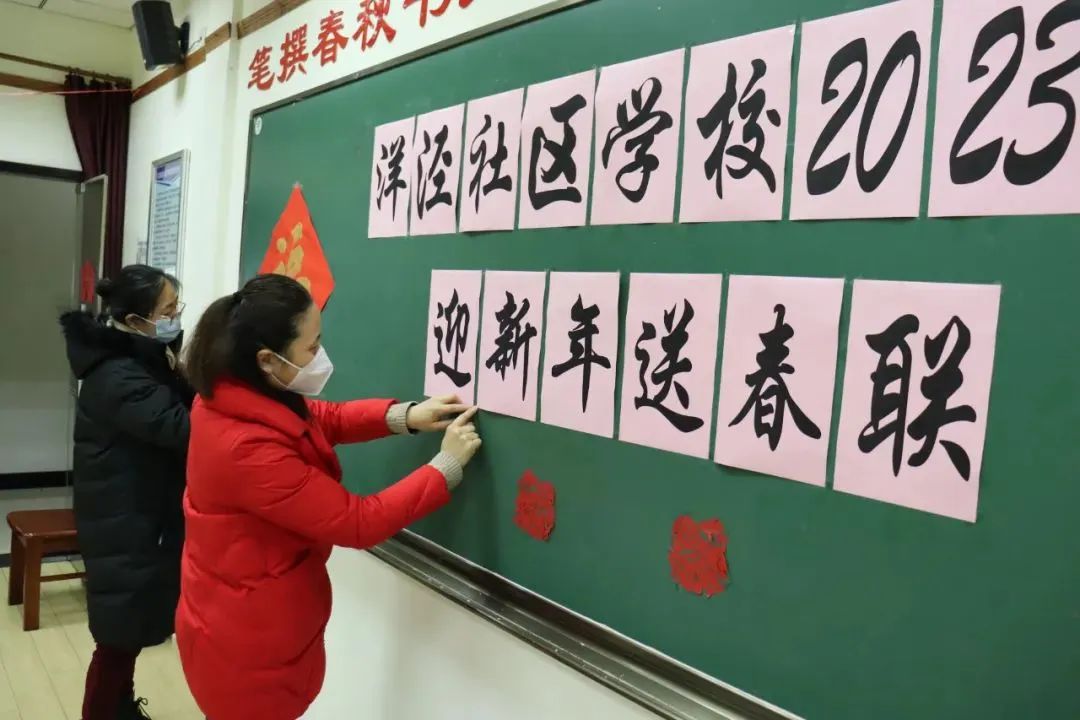 笔撰春秋书
洋泾社区学校2023
迎新年送春联
福